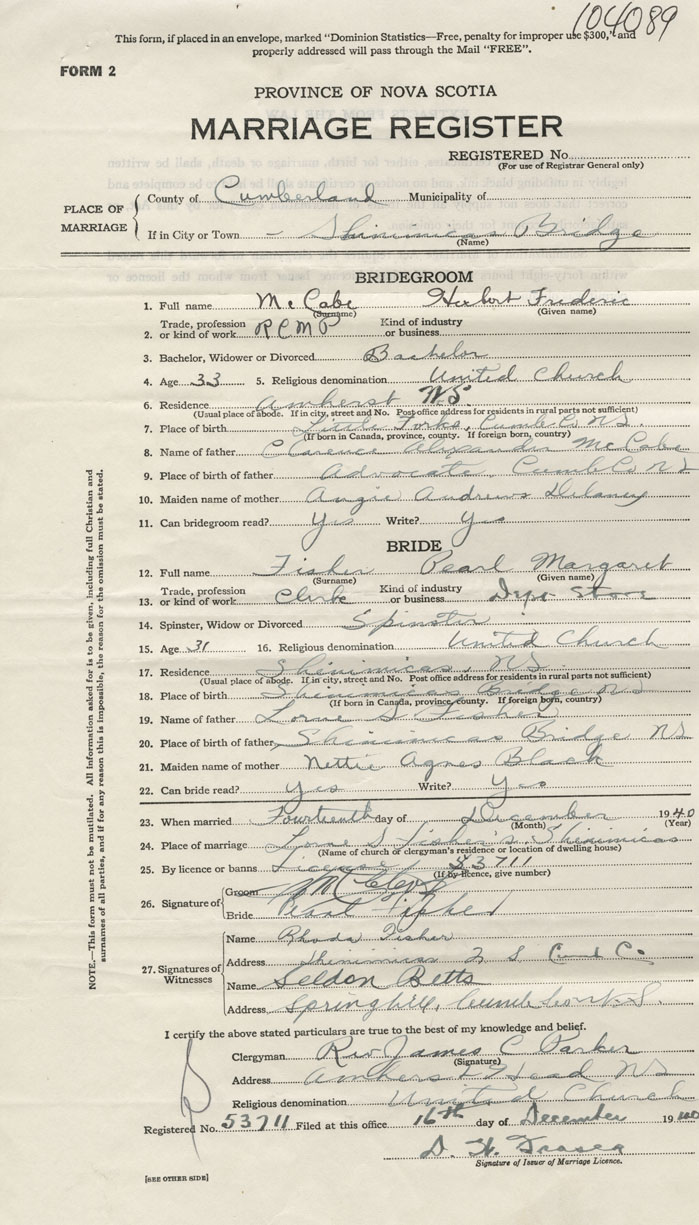 104089
This form, if placed in an envelope, marked "Dominion Statistics—Free, penalty for improper use $300," and
properly addressed will pass through the Mail "FREE".
FORM 2
PROVINCE OF NOVA SCOTIA
MARRIAGE REGISTER
REGISTERED No.
(For use of Registrar General only)
PLACE OF MARRIAGE
County of Cumberland Municipality of
If in City or Town - Shinimicas Bridge
(Name)
BRIDEGROOM
1. Full name McCabe Herbert Frederic
(Surname) (Given name)
2. Trade, profession or kind of work RCMP Kind of industry or business
3. Bachelor, Widower or Divorced Bachelor
4. Age 33 5. Religious denomination United Church
6. Residence Amherst NS.
(Usual place of abode. If in city, street and No. Post office address for residents in rural parts not sufficient)
7. Place of birth Little Forks, Cumb Co NS.
(If born in Canada, province, county. If foreign born, country)
8. Name of father Clarence Alexander McCabe
9. Place of birth of father Advocate Cumb Co NS
10. Maiden name of mother Angie Andrews Delaney
11. Can bridegroom read? Yes Write? Yes
BRIDE
12. Full name Fisher Pearl Margaret
(Surname) (Given name)
13. Trade, profession or kind of work Clerk Kind of industry or business Dept Store
14. Spinster, Widow or Divorced Spinster
15. Age 31 16. Religious denomination United Church
17. Residence Shinimicas, NS.
(Usual place of abode. If in city, street and No. Post office address for residents in rural parts not sufficient)
18. Place of birth Shinimicas Bridge NS
(If born in Canada, province, county. If foreign born, country)
19. Name of father Lorne S Fisher
20. Place of birth of father Shinimicas Bridge NS
21. Maiden name of mother Nettie Agnes Black
22. Can bride read? Yes Write? Yes
23. When married Fourteenth day of December 1940
(Month) (Year)
24. Place of marriage Lorne S Fisher's, Shinimicas
(Name of church or clergyman's residence or location of dwelling house)
25. By licence or banns License 53711
(If by licence, give number)
26. Signature of
Groom
Bride Pearl Fisher
27. Signatures of Witnesses
Name Rhoda Fisher
Address Shinimicas N S Cumb Co
Name Seldon Betts
Address Springhill, Cumb
I certify the above stated particulars are true to the best of my knowledge and belief.
Clergyman Rev James C Parker
(Signature)
Address Amherst Head NS
Religious denomination United Church
Registered No. 53711 Filed at this office 16th day of December 1940
D. H. Fraser
Signature of Issuer of Marriage Licence.
[SEE OTHER SIDE]
NOTE.—This form must not be mutilated. All information asked for is to be given, including full Christian and
surnames of all parties, and if for any reason this is impossible, the reason for the omission must be stated.